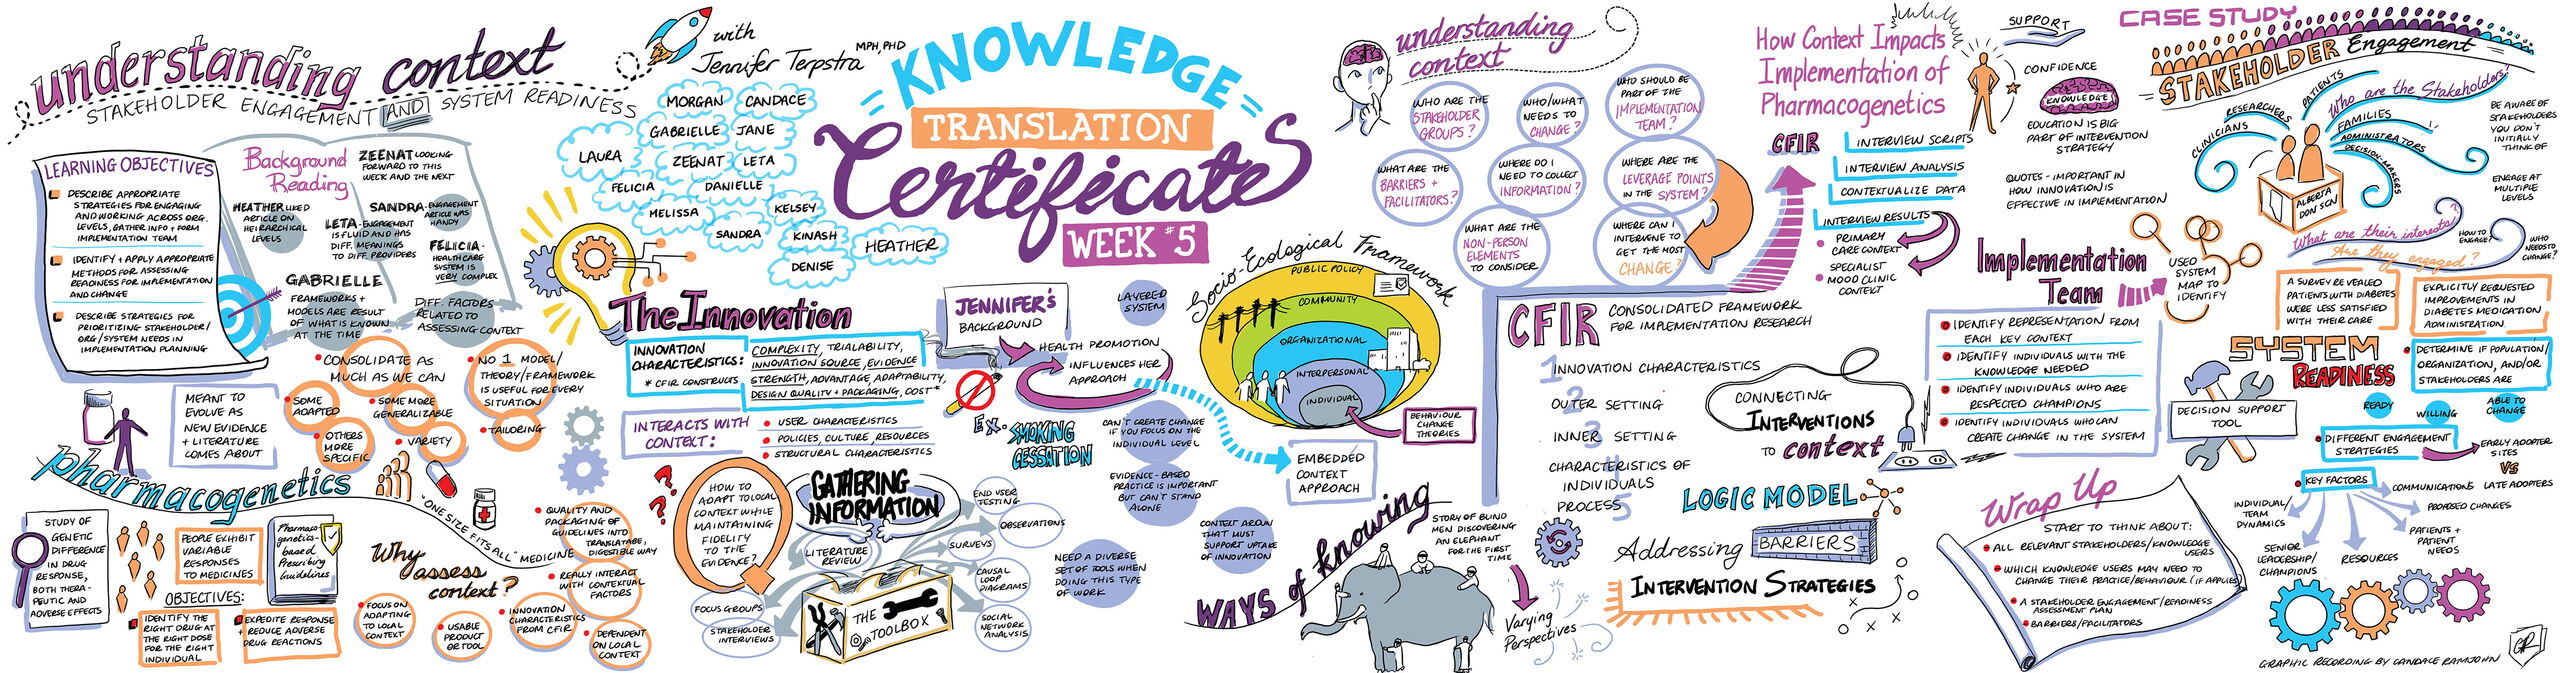 understanding context
STAKEHOLDER ENGAGEMENT AND SYSTEM READINESS
with
Jennifer Terpstra MPH, PHD
LEARNING OBJECTIVES
DESCRIBE APPROPRIATE
STRATEGIES FOR ENGAGING
AND WORKING ACROSS ORG.
LEVELS, GATHER INFO + FORM
IMPLEMENTATION TEAM
IDENTIFY + APPLY APPROPRIATE
METHODS FOR ASSESSING
READINESS FOR IMPLEMENTATION
AND CHANGE
DESCRIBE STRATEGIES FOR
PRIORITIZING STAKEHOLDER/
ORG/SYSTEM NEEDS IN
IMPLEMENTATION PLANNING
Background
Reading
ZEENAT LOOKING
FORWARD TO THIS
WEEK AND THE NEXT
HEATHER LIKED
ARTICLE ON
HEIRARCHICAL
LEVELS
LETA - ENGAGEMENT
IS FLUID AND HAS
DIFF. MEANINGS
TO DIFF. PROVIDERS
SANDRA - ENGAGEMENT
ARTICLE WAS
HANDY
FELICIA -
HEALTHCARE
SYSTEM IS
VERY COMPLEX
GABRIELLE
FRAMEWORKS +
MODELS ARE RESULT
OF WHAT IS KNOWN
AT THE TIME
DIFF. FACTORS
RELATED TO
ASSESSING CONTEXT
CONSOLIDATE AS
MUCH AS WE CAN
NO 1 MODEL/
THEORY/FRAMEWORK
IS USEFUL FOR EVERY
SITUATION
SOME
ADAPTED
SOME MORE
GENERALIZABLE
OTHERS
MORE
SPECIFIC
VARIETY
TAILORING
MEANT TO
EVOLVE AS
NEW EVIDENCE
+ LITERATURE
COMES ABOUT
pharmacogenetics
"ONE SIZE FITS ALL" MEDICINE
STUDY OF
GENETIC
DIFFERENCE
IN DRUG
RESPONSE,
BOTH THERA-
PEUTIC AND
ADVERSE EFFECTS
PEOPLE EXHIBIT
VARIABLE
RESPONSES
TO MEDICINES
Pharmaco-
genetics-
based
Prescribing
Guidelines
OBJECTIVES:
IDENTIFY THE
RIGHT DRUG AT
THE RIGHT DOSE
FOR THE RIGHT
INDIVIDUAL
EXPEDITE RESPONSE
+ REDUCE ADVERSE
DRUG REACTIONS
Why
assess
context?
FOCUS ON
ADAPTING
TO LOCAL
CONTEXT
USABLE
PRODUCT
OR TOOL
INNOVATION
CHARACTERISTICS
FROM CFIR
QUALITY AND
PACKAGING OF
GUIDELINES INTO
TRANSLATABLE,
DIGESTIBLE WAY
REALLY INTERACT
WITH CONTEXTUAL
FACTORS
DEPENDENT
ON LOCAL
CONTEXT
MORGAN
CANDACE
GABRIELLE
JANE
LAURA
ZEENAT
LETA
FELICIA
DANIELLE
MELISSA
KELSEY
SANDRA
KINASH
HEATHER
DENISE
KNOWLEDGE
TRANSLATION
Certificate
WEEK #5
The Innovation
INNOVATION
CHARACTERISTICS:
* CFIR CONSTRUCTS
COMPLEXITY, TRIALABILITY,
INNOVATION SOURCE, EVIDENCE
STRENGTH, ADVANTAGE, ADAPTABILITY,
DESIGN QUALITY + PACKAGING, COST*
INTERACTS WITH
CONTEXT:
USER CHARACTERISTICS
POLICIES, CULTURE, RESOURCES
STRUCTURAL CHARACTERISTICS
???
HOW TO
ADAPT TO LOCAL
CONTEXT WHILE
MAINTAINING
FIDELITY
TO THE
EVIDENCE?
GATHERING
INFORMATION
LITERATURE
REVIEW
FOCUS GROUPS
STAKEHOLDER
INTERVIEWS
END USER
TESTING
OBSERVATIONS
SURVEYS
CAUSAL
LOOP
DIAGRAMS
SOCIAL
NETWORK
ANALYSIS
THE
TOOLBOX
JENNIFER'S
BACKGROUND
HEALTH PROMOTION
INFLUENCES HER
APPROACH
EX. SMOKING
CESSATION
LAYERED
SYSTEM
CAN'T CREATE CHANGE
IF YOU FOCUS ON THE
INDIVIDUAL LEVEL
EVIDENCE-BASED
PRACTICE IS IMPORTANT
BUT CAN'T STAND
ALONE
NEED A DIVERSE
SET OF TOOLS WHEN
DOING THIS TYPE
OF WORK
Socio-Ecological Framework
PUBLIC POLICY
COMMUNITY
ORGANIZATIONAL
INTERPERSONAL
INDIVIDUAL
BEHAVIOUR
CHANGE
THEORIES
EMBEDDED
CONTEXT
APPROACH
CONTEXT AROUN
THAT MUST
SUPPORT UPTAKE
OF INNOVATION
WAYS of knowing
STORY OF BLIND
MEN DISCOVERING
AN ELEPHANT
FOR THE FIRST
TIME
Varying
Perspectives
understanding
context
WHO ARE THE
STAKEHOLDER
GROUPS?
WHO/WHAT
NEEDS TO
CHANGE?
WHO SHOULD BE
PART OF THE
IMPLEMENTATION
TEAM?
WHAT ARE THE
BARRIERS +
FACILITATORS?
WHERE DO I
NEED TO COLLECT
INFORMATION?
WHERE ARE THE
LEVERAGE POINTS
IN THE SYSTEM?
WHAT ARE THE
NON-PERSON
ELEMENTS
TO CONSIDER
WHERE CAN I
INTERVENE TO
GET THE MOST
CHANGE?
CFIR
CONSOLIDATED FRAMEWORK
FOR IMPLEMENTATION RESEARCH
1 INNOVATION CHARACTERISTICS
2 OUTER SETTING
3 INNER SETTING
4 CHARACTERISTICS OF
INDIVIDUALS
5 PROCESS
CONNECTING
INTERVENTIONS
TO context
LOGIC MODEL
Addressing BARRIERS
INTERVENTION STRATEGIES
How Context Impacts
Implementation of
Pharmacogenetics
CFIR
INTERVIEW SCRIPTS
INTERVIEW ANALYSIS
CONTEXTUALIZE DATA
INTERVIEW RESULTS
PRIMARY
CARE CONTEXT
SPECIALIST
MOOD CLINIC
CONTEXT
SUPPORT
CONFIDENCE
KNOWLEDGE
EDUCATION IS BIG
PART OF INTERVENTION
STRATEGY
QUOTES - IMPORTANT IN
HOW INNOVATION IS
EFFECTIVE IN IMPLEMENTATION
Implementation
Team
USED
SYSTEM
MAP TO
IDENTIFY
IDENTIFY REPRESENTATION FROM
EACH KEY CONTEXT
IDENTIFY INDIVIDUALS WITH THE
KNOWLEDGE NEEDED
IDENTIFY INDIVIDUALS WHO ARE
RESPECTED CHAMPIONS
IDENTIFY INDIVIDUALS WHO CAN
CREATE CHANGE IN THE SYSTEM
CASE STUDY
STAKEHOLDER Engagement
Who are the Stakeholders?
CLINICIANS
RESEARCHERS
PATIENTS
FAMILIES
ADMINISTRATORS
DECISION-MAKERS
ALBERTA
DON SCN
BE AWARE OF
STAKEHOLDERS
YOU DON'T
INITIALLY
THINK OF
ENGAGE AT
MULTIPLE
LEVELS
What are their interests?
Are they engaged?
HOW TO
ENGAGE?
WHO
NEEDS TO
CHANGE?
A SURVEY REVEALED
PATIENTS WITH DIABETES
WERE LESS SATISFIED
WITH THEIR CARE
EXPLICITLY REQUESTED
IMPROVEMENTS IN
DIABETES MEDICATION
ADMINISTRATION.
SYSTEM
READINESS
DETERMINE IF POPULATION/
ORGANIZATION, AND/OR
STAKEHOLDERS ARE
READY
WILLING
ABLE TO
CHANGE
DECISION SUPPORT
TOOL
DIFFERENT ENGAGEMENT
STRATEGIES
EARLY ADOPTER
SITES
VS
LATE ADOPTERS
KEY FACTORS
INDIVIDUAL/
TEAM
DYNAMICS
SENIOR
LEADERSHIP/
CHAMPIONS
RESOURCES
PATIENTS +
PATIENT
NEEDS
PROPOSED CHANGES
COMMUNICATIONS
Wrap Up
START TO THINK ABOUT:
ALL RELEVANT STAKEHOLDERS/KNOWLEDGE
USERS
WHICH KNOWLEDGE USERS MAY NEED TO
CHANGE THEIR PRACTICE/BEHAVIOUR (IF APPLIES)
A STAKEHOLDER ENGAGEMENT/READINESS
ASSESSMENT PLAN
BARRIERS/FACILITATORS
GRAPHIC RECORDING BY CANDACE RAMJOHN
CR